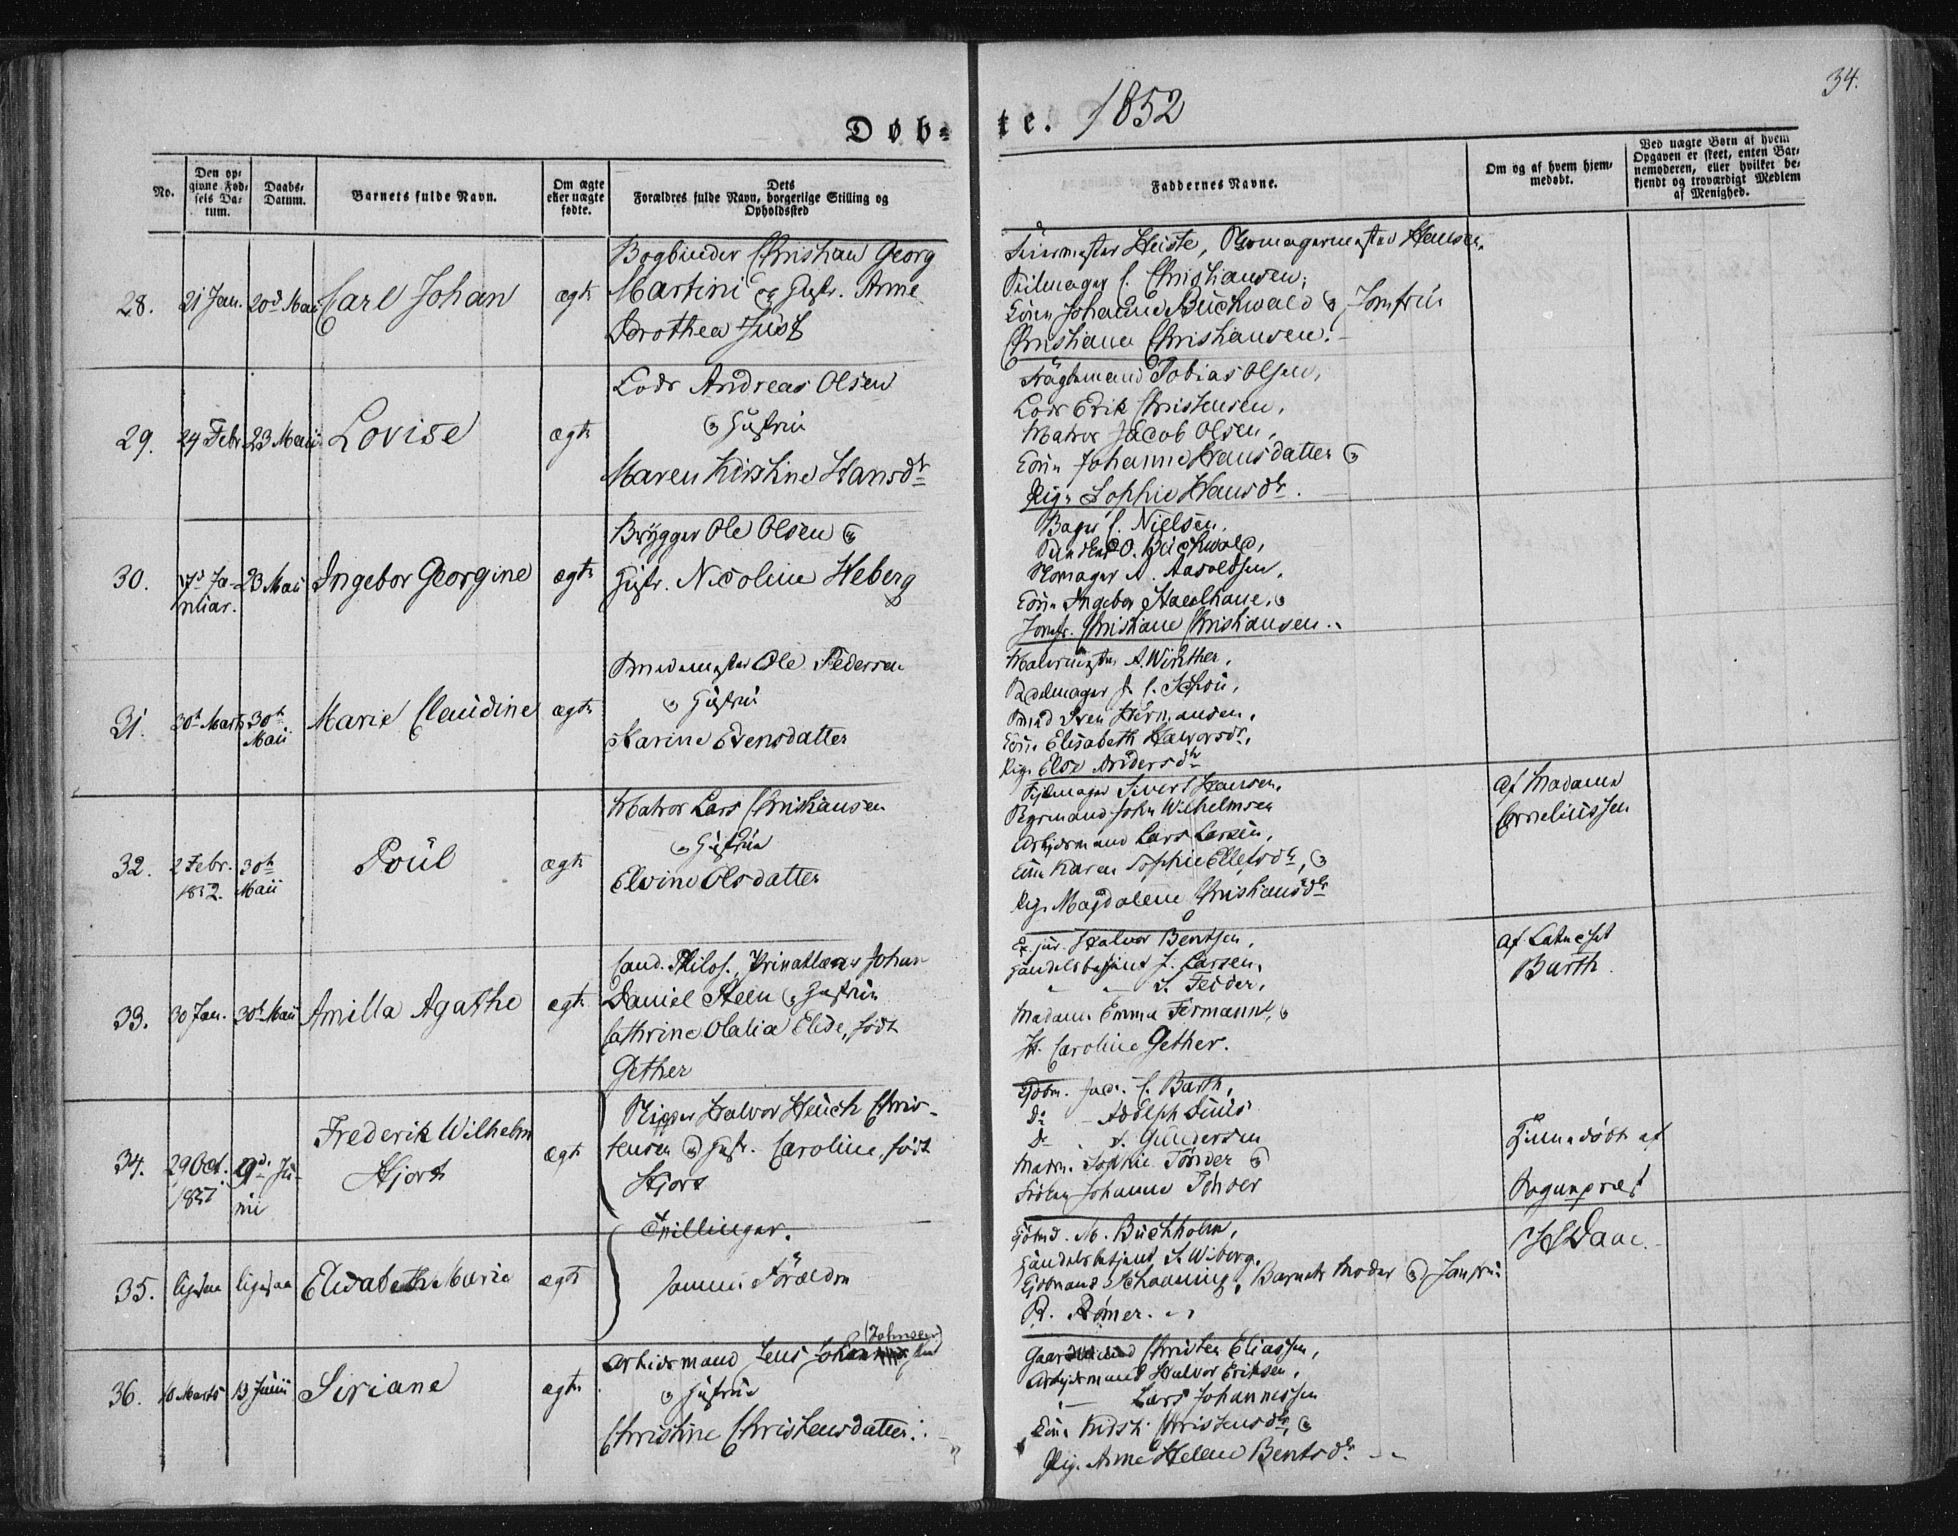 34.
Døb= te. 1852
No.
Den op=
givne Fød=
sels Da=
tum.
Daabs=
Datum.
Barnets fulde Navn.
Om ægte
eller uægte
fødte.
Dets
Forældres fulde Navn, borgerlige Stilling og
Opholdssted
Faddernes Navne.
Om og af hvem hjem=
medøbt.
Ved uægte Børn af hvem
Opgaven er skeet, enten Bar=
nemoderen, eller hvilket be=
kjendt og troværdigt Medlem
af Menighed.
28.
21 Jan.
20d Mai
Carl Johan
ægte
Bogbinder Christian Georg
Martini og Hustr. Anne
Dorothea Just
Heiste, Hansen.
C. Christiansen,
Kone Johanne Buchwald og Jomfru
Christiana Christiansen.
29.
24 Febr.
23 Maii
Lovise
ægte
Lods Andreas Olsen
og Hustrue
Maren Kirstine Hansdr
Tobias Olsen,
Lods Erik Christensen,
Matros Jacob Olsen,
Kone Johanne Hansdatter og
Pige Sophie Hansdr.
30.
17d Ja-
nuar.
23 Maii
Ingebor Georgine
ægte
Brygger Ole Olsen og
Hustr. Nicoline Heberg
Bager C. Nielsen,
O. Buchwald,
A. Aasoldsen,
Kone Ingebor
Jomfr. Christiane Christiansen.
31.
30te Marts
30te
Maii
Marie Claudine
ægte
Smedemester Ole Pedersen
og Hustrue
Karine Evensdatter
Malermester A. Winther,
Sadelmager J. C. Schou,
Smed Sven Hermansen,
Kone Elisabeth Halvorsdr,
Pige Else Andersdtr
32.
2 Febr.
1852.
30te
Maii
Poul
ægte
Matros Lars Christiansen
og Hustrue
Elvine Olsdatter
Sivert Hansen,
Styrmand John Wilhelmsen
Arbejdsmand Lars Larsen,
Kone Karen Sophie Ellefsdr, og
Pige Magdalene Christiansdr
af Madame
Corneliussen
33.
30 Jan.
30te Maii
Amilla Agathe
ægte
Cand. Philos., Privatlærer Johan
Daniel Steen og Hustrue
Cathrine Olalia Elise, født
Gether
Ex. jur. Halvor Bentsen,
Handelsbetjent J. Larsen,
J. Feider,
Madame Emma Fermann, og
Caroline Gether.
af
Barth.
34.
29 Oct.
1851
9d Ju-
nii
Frederik Wilhelm
Hjort
ægte
Skipper Halvor Heuch Chris-
tensen og Hustr. Caroline, født
Hjort
Kjøbm. Jac. C. Barth,
Do Adolph Duus
Do J. Gundersen
Madm. Sophie Tønder og
Frøken Johanne Tønder
Hjemmedøbt af
Sognepræst
Daae.
35.
ligesaa
ligesaa
Elisabeth Marie
ægte
Tvillinger.
samme Forældre
Kjøbmd. M. Buchholm,
Handelsbetjent S. Wiborg,
Kjøbmand Schanning, Barnets Moder og Jomfrue
R. Rømer.
36.
10 Marts
13 Junii
Siriane
ægte
(Johnsen)
Arbeidsmand Jens
og Hustrue
Christine Christensdatter.
Gaardmand Christen Eliassen,
Arbejdsmand Halvor Eriksen,
Lars Johannessen
Kone Kirsti Christensdr, og
Pige Anne Helene Bentsdr.